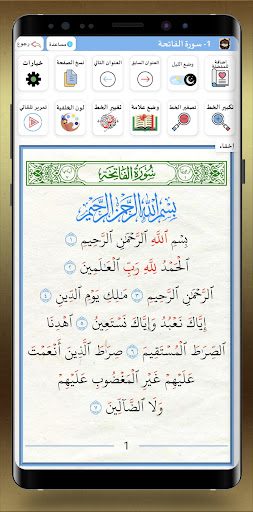 1- سورة الفاتحة
مساعدة
رجوع
إضافة للمفضلة
وضع الليل
العنوان السابق
العنوان التالي
نسخ الصفحة
خيارات
تكبير الخط
تصغير الخط
وضع علامة
تغيير الخط
لون الخلفية
تمرير تلقائي
إخفاء
سُورَةُ الفَاتِحَةِ
بِسْمِ اللَّهِ الرَّحْمَنِ الرَّحِيمِ
بِسْمِ ٱللَّهِ ٱلرَّحْمَٰنِ ٱلرَّحِيمِ ١
ٱلْحَمْدُ لِلَّهِ رَبِّ ٱلْعَٰلَمِينَ ٢
ٱلرَّحْمَٰنِ ٱلرَّحِيمِ ٣ مَٰلِكِ يَوْمِ ٱلدِّينِ ٤
إِيَّاكَ نَعْبُدُ وَإِيَّاكَ نَسْتَعِينُ ٥ ٱهْدِنَا
ٱلصِّرَٰطَ ٱلْمُسْتَقِيمَ ٦ صِرَٰطَ ٱلَّذِينَ أَنْعَمْتَ
عَلَيْهِمْ غَيْرِ ٱلْمَغْضُوبِ عَلَيْهِمْ
وَلَا ٱلضَّآلِّينَ ٧
1